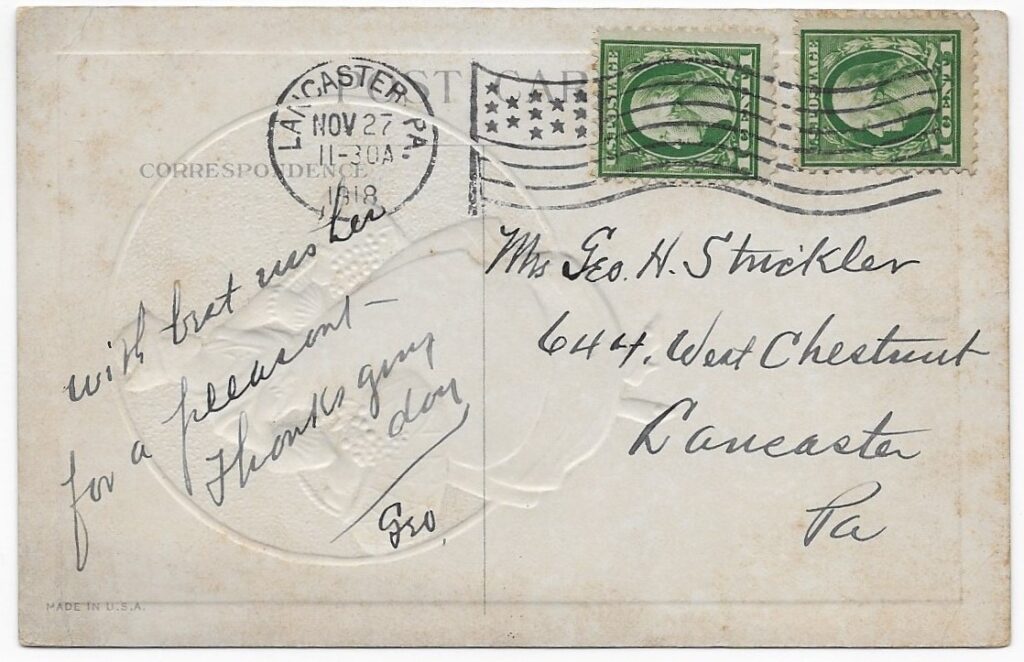 POST CARD
CORRESPONDENCE
LANCASTER, PA.
NOV 27
11-30A
1918
U.S. POSTAGE
1 CENT 1
U.S. POSTAGE
1 CENT 1
with best wishes
for a pleasant -
Thanksgiving
day
Geo.
Mrs Geo. H. Strickler
644. West Chestnut
Lancaster
Pa
MADE IN U.S.A.